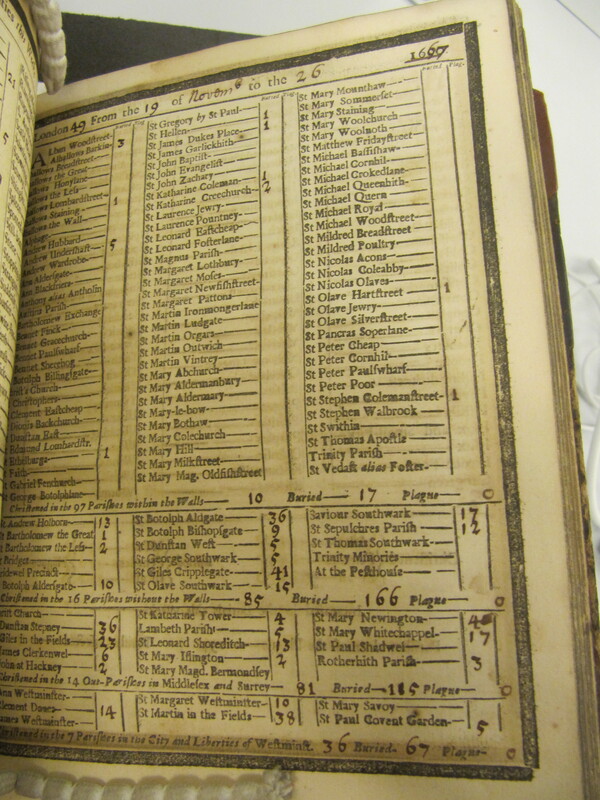 1667
London 49 From the 19 of Novem to the 26
Buried Plag.
Buried Plag.
Buried Plag.
Alban Woodstreet
Alhallows Barkin 3
Breadstreet
the Great
Honylane
the Less
Lombardstreet
Staining 1
the Wall
Hubbard
Undershaft 5
Wardrobe
Aldersgate
Blackfriers
alias Antholin
Parish
Exchange
Finck
Gracechurch
Paulswharf
Sherehog
Botolph Billingsgate
Church
Christophers
Clement Eastcheap
Dionis Backchurch
Dunstan East
Edmund Lombardstr.
Ethelburga 1
Faith
Gabriel Fenchurch
George Botolphlane
St Gregory by St Paul 1
St Hellen 1
St James Dukes Place
St James Garlickhith
St John Baptist
St John Evangelist
St John Zachary 1
St Katharine Coleman 2
St Katharine Creechurch
St Laurence Jewry
St Laurence Pountney
St Leonard Eastcheap
St Leonard Fosterlane
St Magnus Parish
St Margaret Lothbury
St Margaret Moses
St Margaret Newfishstreet
St Margaret Pattons
St Martin Ironmongerlane
St Martin Ludgate
St Martin Orgars
St Martin Outwich
St Martin Vintrey
St Mary Abchurch
St Mary Aldermanbury
St Mary Aldermary
St Mary-le-bow
St Mary Bothaw
St Mary Colechurch
St Mary Hill
St Mary Milkstreet
St Mary Mag. Oldfishstreet
St Mary Mounthaw
St Mary Sommerset
St Mary Staining
St Mary Woolchurch
St Mary Woolnoth
St Matthew Fridaystreet
St Michael Bassishaw
St Michael Cornhil
St Michael Crokedlane
St Michael Queenhith
St Michael Quern
St Michael Royal
St Michael Woodstreet
St Mildred Breadstreet
St Mildred Poultry
St Nicolas Acons
St Nicolas Coleabby
St Nicolas Olaves
St Olave Hartstreet 1
St Olave Jewry
St Olave Silverstreet
St Pancras Soperlane
St Peter Cheap
St Peter Cornhil
St Peter Paulswharf
St Peter Poor
St Stephen Colemanstreet 1
St Stephen Walbrook
St Swithin
St Thomas Apostle
Trinity Parish
St Vedast alias Foster
Christened in the 97 Parishes within the Walls 10 Buried 17 Plague 0
St Andrew Holborn 13
St Bartholomew the Great 1
St Bartholomew the Less 2
Bridget
Bridewel Precinct
Botolph Aldersgate 10
St Botolph Aldgate 36
St Botolph Bishopsgate 9
St Dunstan West 5
St George Southwark 5
St Giles Cripplegate 41
St Olave Southwark 15
Saviour Southwark 17
St Sepulchres Parish 12
St Thomas Southwark
Trinity Minories
At the Pesthouse
Christened in the 16 Parishes without the Walls 85 Buried 166 Plague 0
Christ Church
Dunstan Stepney 36
Giles in the Fields 23
James Clerkenwel 6
John at Hackney 2
St Katharine Tower 4
Lambeth Parish 5
St Leonard Shoreditch 13
St Mary Islington 2
St Mary Magd. Bermondsey
St Mary Newington
St Mary Whitechappel 17
St Paul Shadwel
Rotherhith Parish 3
Christened in the 14 Out-Parishes in Middlesex and Surrey 81 Buried 115 Plague 0
Ann Westminster
Clement Danes 14
James Westminster
St Margaret Westminster 10
St Martin in the Fields 38
St Mary Savoy
St Paul Covent Garden 5
Christened in the 7 Parishes in the City and Liberties of Westminst. 36 Buried 67 Plague 0